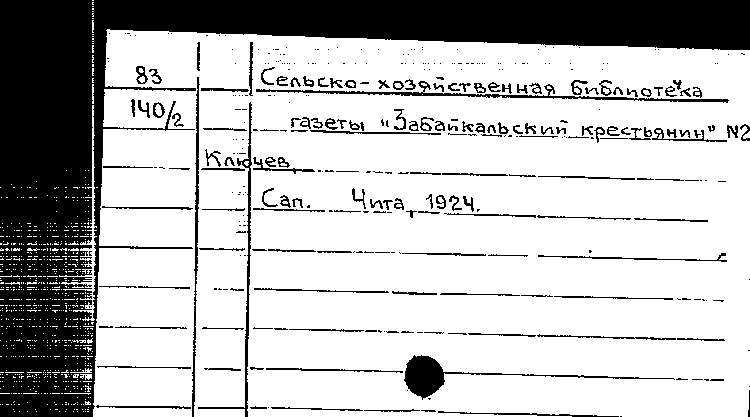 83 Сельско-хозяйственная библиотека
140/2 газеты "Забайкальский крестьянин" N2
Ключев,
Сап. Чита, 1924.